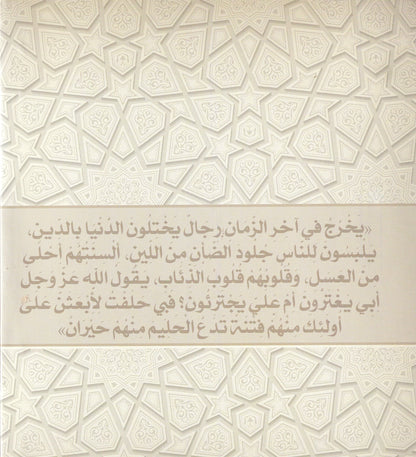 «يخرج في آخر الزمان رجال يختلون الدنيا بالدين،
يلبسون للناس جلود الضأن من اللين، ألسنتهم أحلى
من العسل، وقلوبهم قلوب الذئاب، يقول الله عز وجل
أبي يغترون أم علي يجترئون؟ فبي حلفت لأبعثن على
أولئك منهم فتنة تدع الحليم منهم حيران»